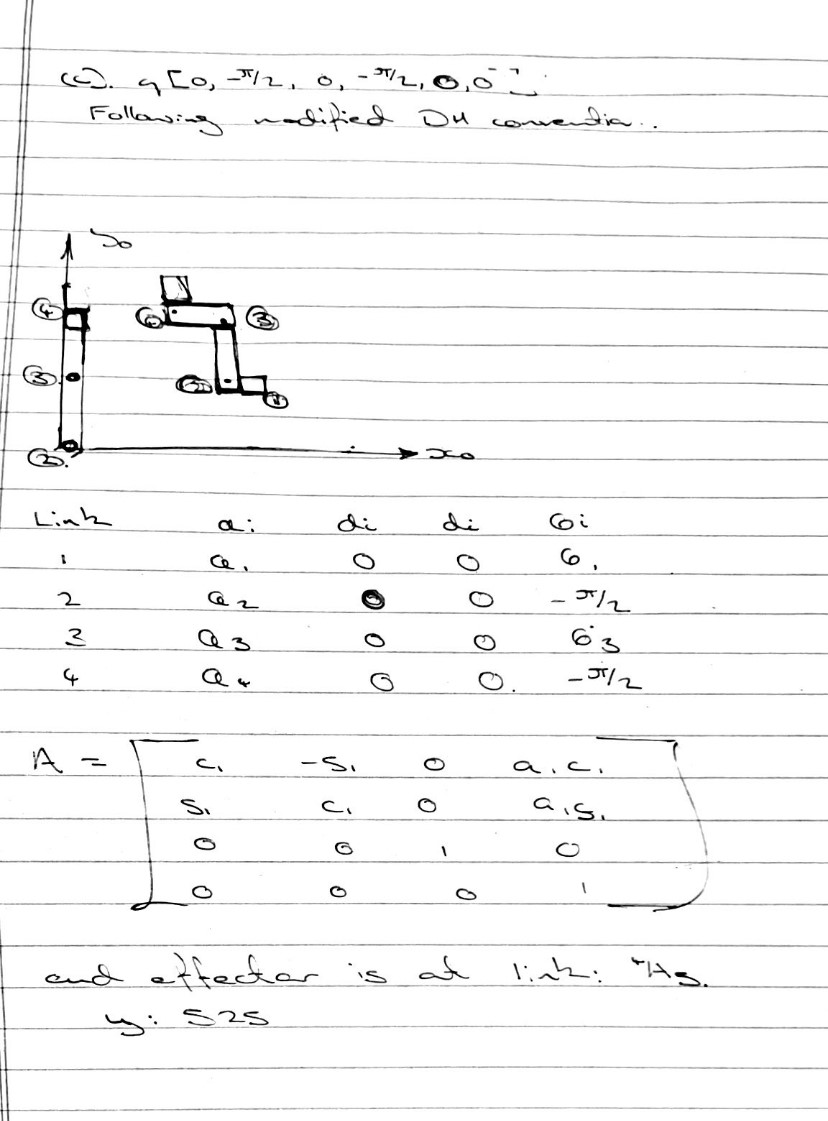 (c). q [0, -π/2, 0, -π/2, 0, 0]
Following modified DH convention..
y₀
④ ④ ③
③
② x₀
Link ai di di θi
1 a₁ 0 0 θ₁
2 a₂ 0 -π/2
3 a₃ 0 0 θ₃
4 a₄ 0 0. -π/2
A = c₁ -s₁ 0 a₁c₁
s₁ c₁ 0 a₁s₁
0 0 1 0
0 0 0 1
end effector is at link: ⁴A₅.
y: 525